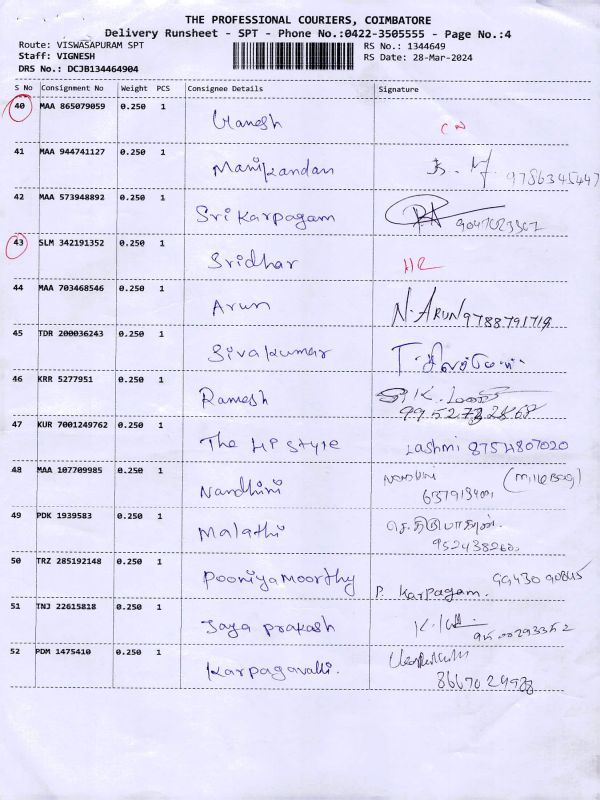 THE PROFESSIONAL COURIERS, COIMBATORE
Delivery Runsheet - SPT - Phone No.:0422-3505555 - Page No.:4
Route: VISWASAPURAM SPT
Staff: VIGNESH
DRS No.: DCJB134464904
RS No.: 1344649
RS Date: 28-Mar-2024
S No Consignment No Weight PCS Consignee Details Signature
40 MAA 865079059 0.250 1 Ganesh
41 MAA 944741127 0.250 1 Manikandan 9786345447
42 MAA 573948892 0.250 1 Sri Karpagam
43 SLM 342191352 0.250 1 Sridhar
44 MAA 703468546 0.250 1 Arun N.ARUN 9788791719
45 TDR 200036243 0.250 1 Sivakumar
46 KRR 5277951 0.250 1 Ramesh
47 KUR 7001249762 0.250 1 The HP Style Lashmi 8754807020
48 MAA 107709985 0.250 1 Nandhini
49 PDK 1939583 0.250 1 Malathi
50 TRZ 285192148 0.250 1 Pooniyamoorthy P. Karpagam.
51 TNJ 22615818 0.250 1 Jaya prakash
52 PDM 1475410 0.250 1 Karpagavalli.